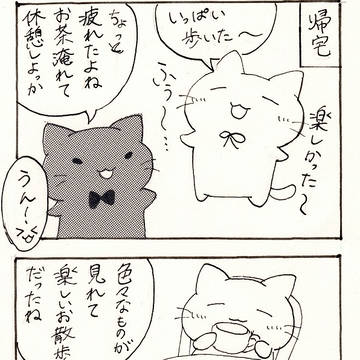 帰宅
いっぱい
歩いた～
楽しかった～
ふぅ～…
ちょっと
疲れたよね
お茶淹れて
休憩しよっか
うん!
色々なものが
見れて
楽しいお散歩
だったね